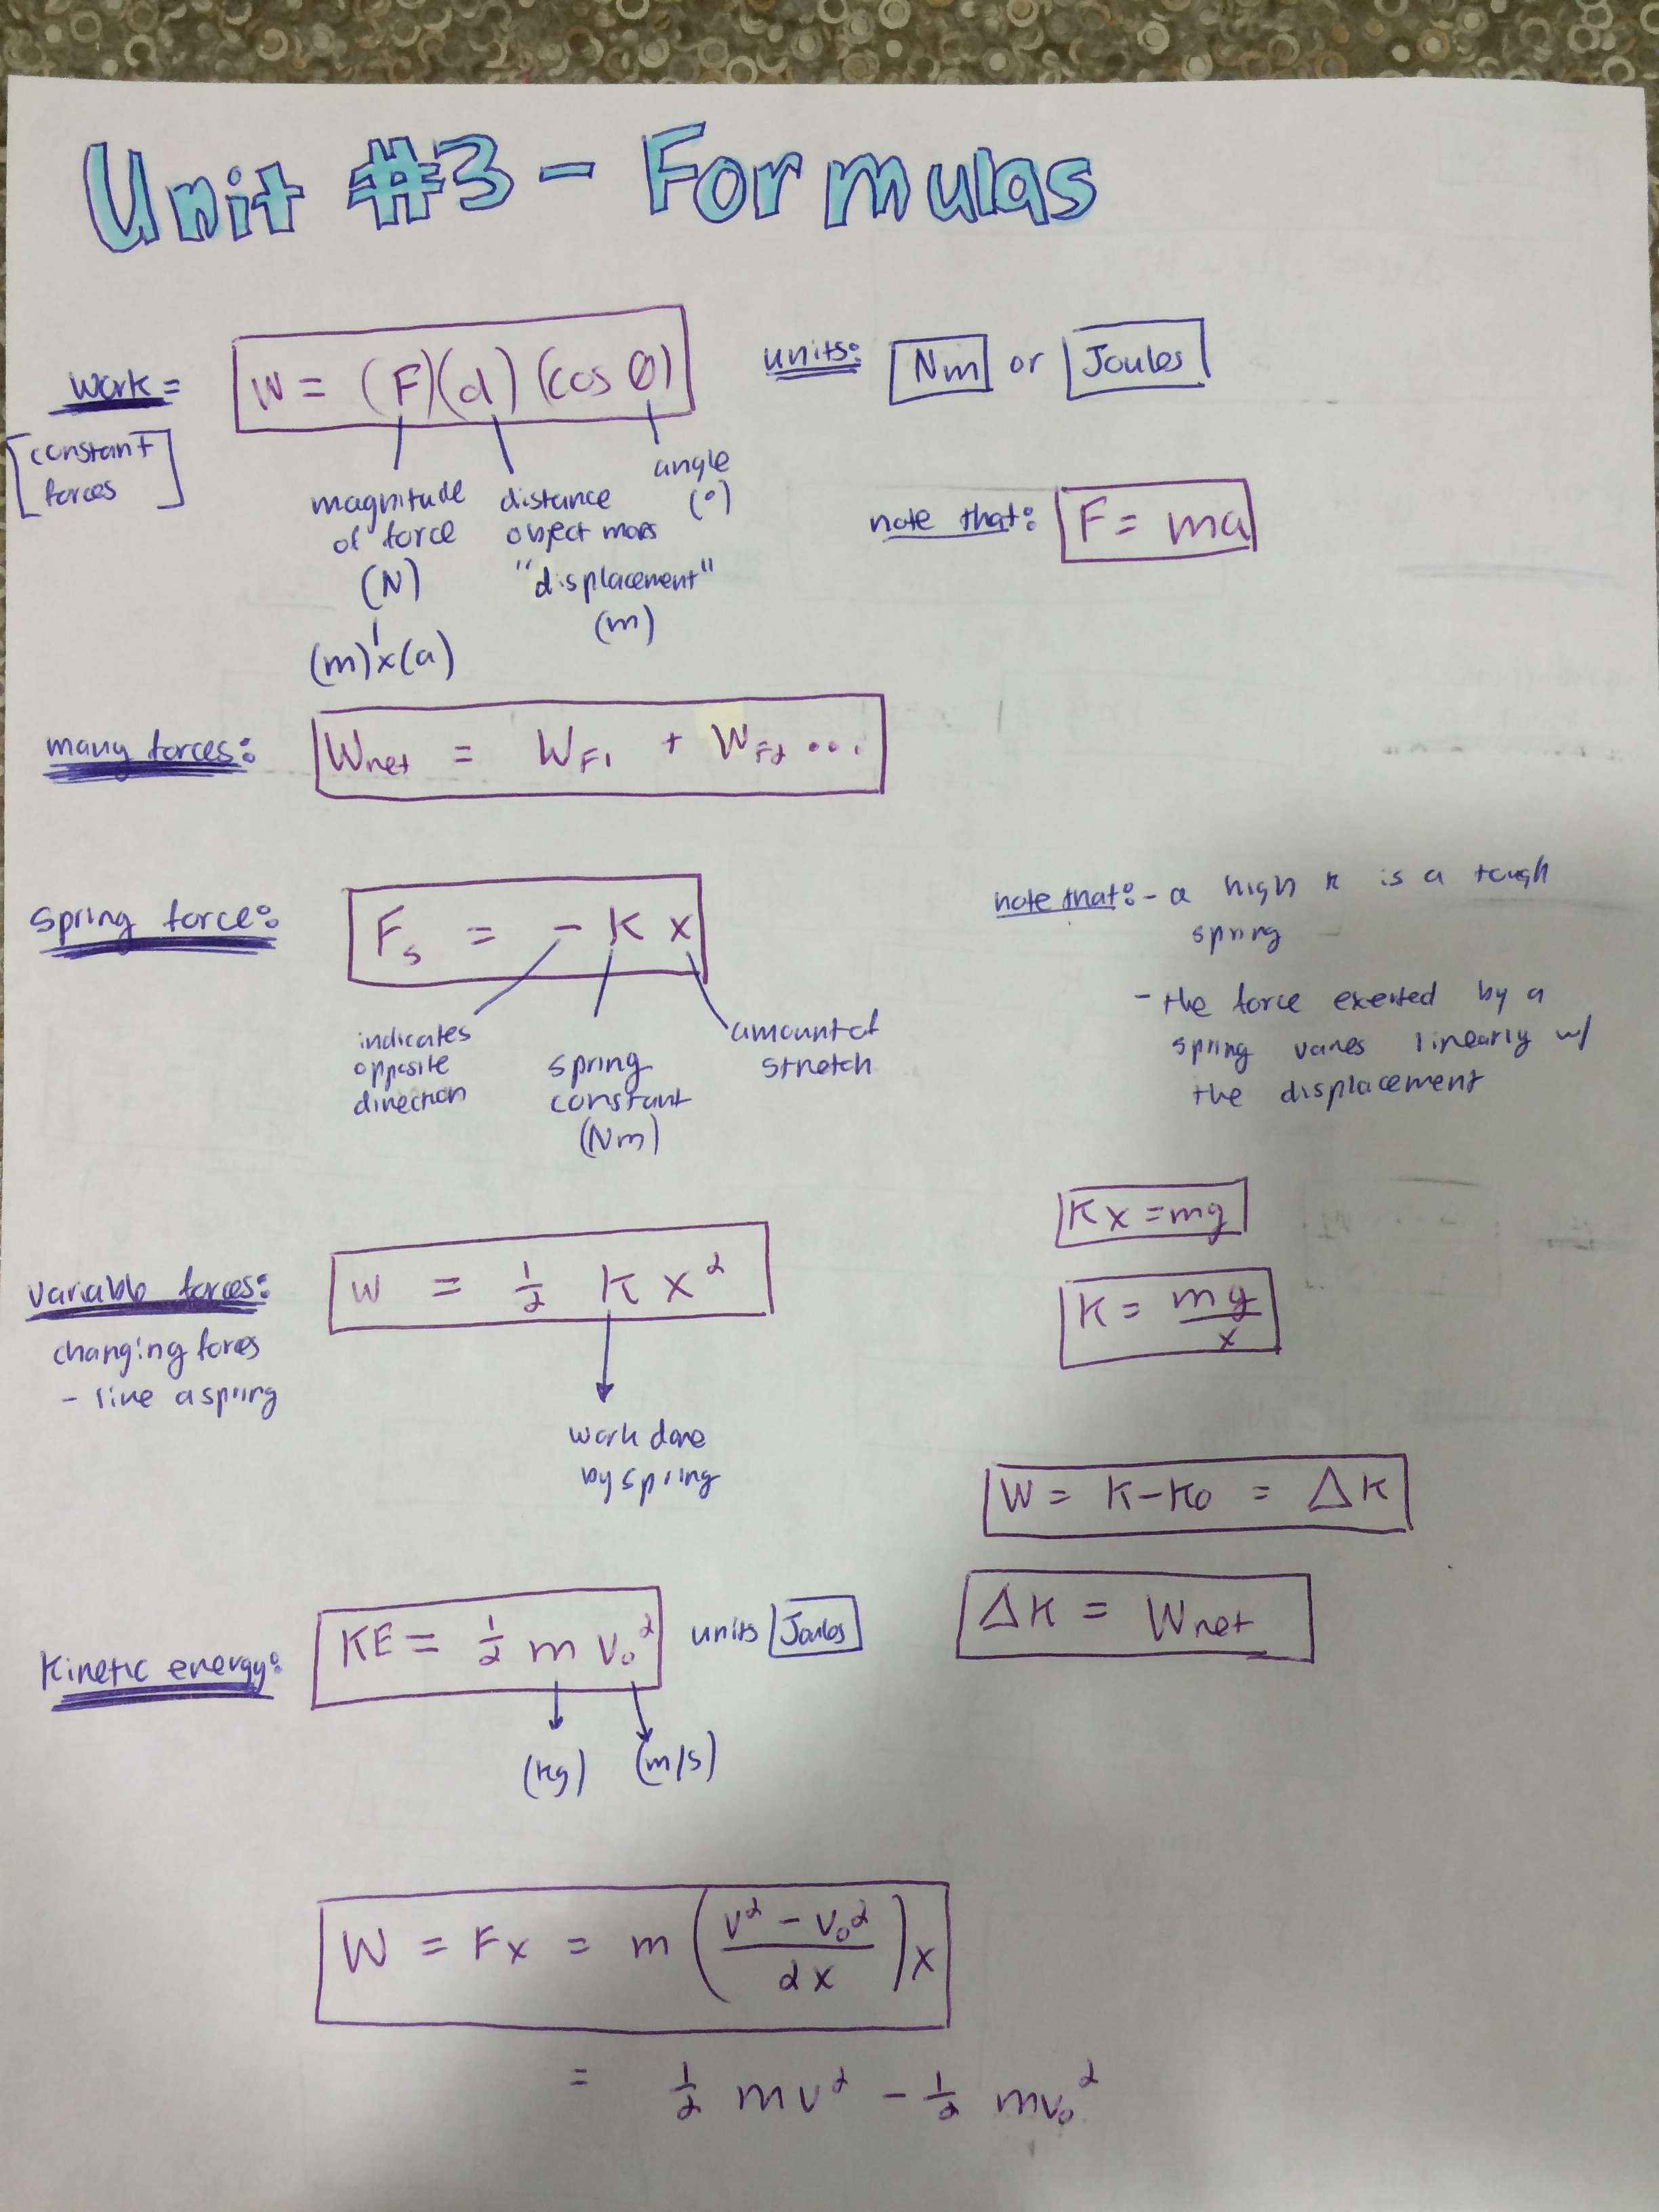 Unit #3 - Formulas
work = W = (F)(d)(cos θ) units: Nm or Joules
[constant forces]
magnitude of force (N)
(m) x (a)
distance object moves "displacement" (m)
angle (°)
note that: F = ma
many forces: Wnet = WF1 + WF2 ...
spring force: Fs = - K x
indicates opposite direction
spring constant (Nm)
amount of stretch
note that: - a high k is a tough
spring
- the force exerted by a
spring varies linearly w/
the displacement
Kx = mg
K = mg/x
variable forces: W = 1/2 K x²
changing forces
- like a spring
work done
by spring
W = K - K0 = ΔK
ΔK = Wnet
Kinetic energy: KE = 1/2 m v₀² units Joules
(kg) (m/s)
W = Fx = m ( (v² - v₀²) / 2x ) x
= 1/2 mv² - 1/2 mv₀²